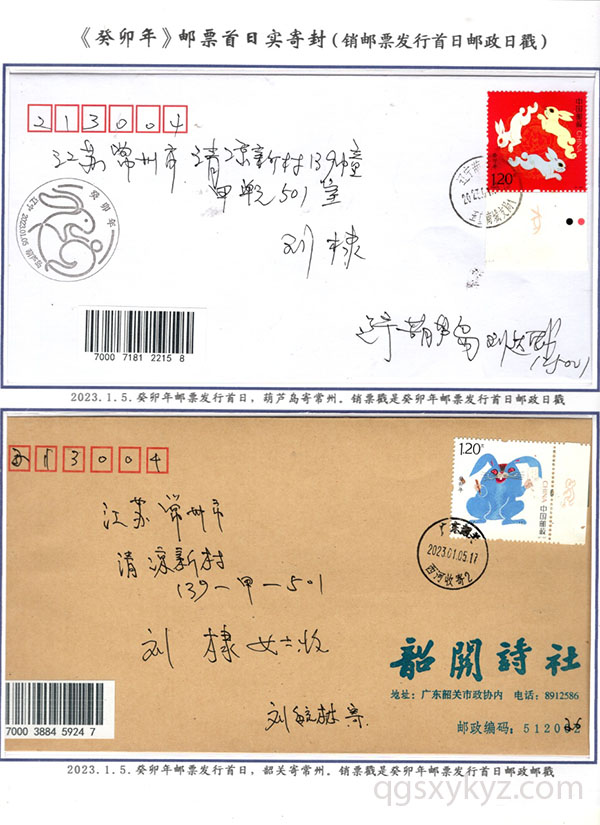 《癸卯年》邮票首日实寄封(销邮票发行首日邮政日戳)
213004
江苏常州市清凉新村139幢
甲单元501室
刘棣
中国邮政
1.20元
癸卯年
2023.01.05
7000 7181 2215 8
2023.1.5.癸卯年邮票发行首日,葫芦岛寄常州。销票戳是癸卯年邮票发行首日邮政日戳
213004
江苏常州市
清凉新村
139-甲-501
刘棣女士收
1.20元
CHINA
中国邮政
广东韶关
2023.01.05.17
西河收寄2
韶関詩社
地址:广东韶关市政协内 电话:8912586
邮政编码:5120
7000 3884 5924 7
2023.1.5.癸卯年邮票发行首日,韶关寄常州。销票戳是癸卯年邮票发行首日邮政邮戳
qgsxykyz.com